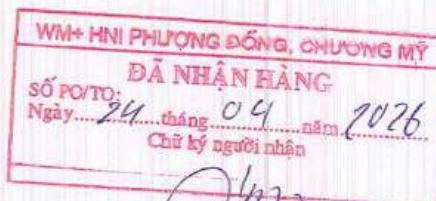 WM+ HNI PHƯỢNG ĐỒNG, CHƯƠNG MỸ
ĐÃ NHẬN HÀNG
SỐ PO/TO:
Ngày 24 tháng 04 năm 2026
Chữ ký người nhận